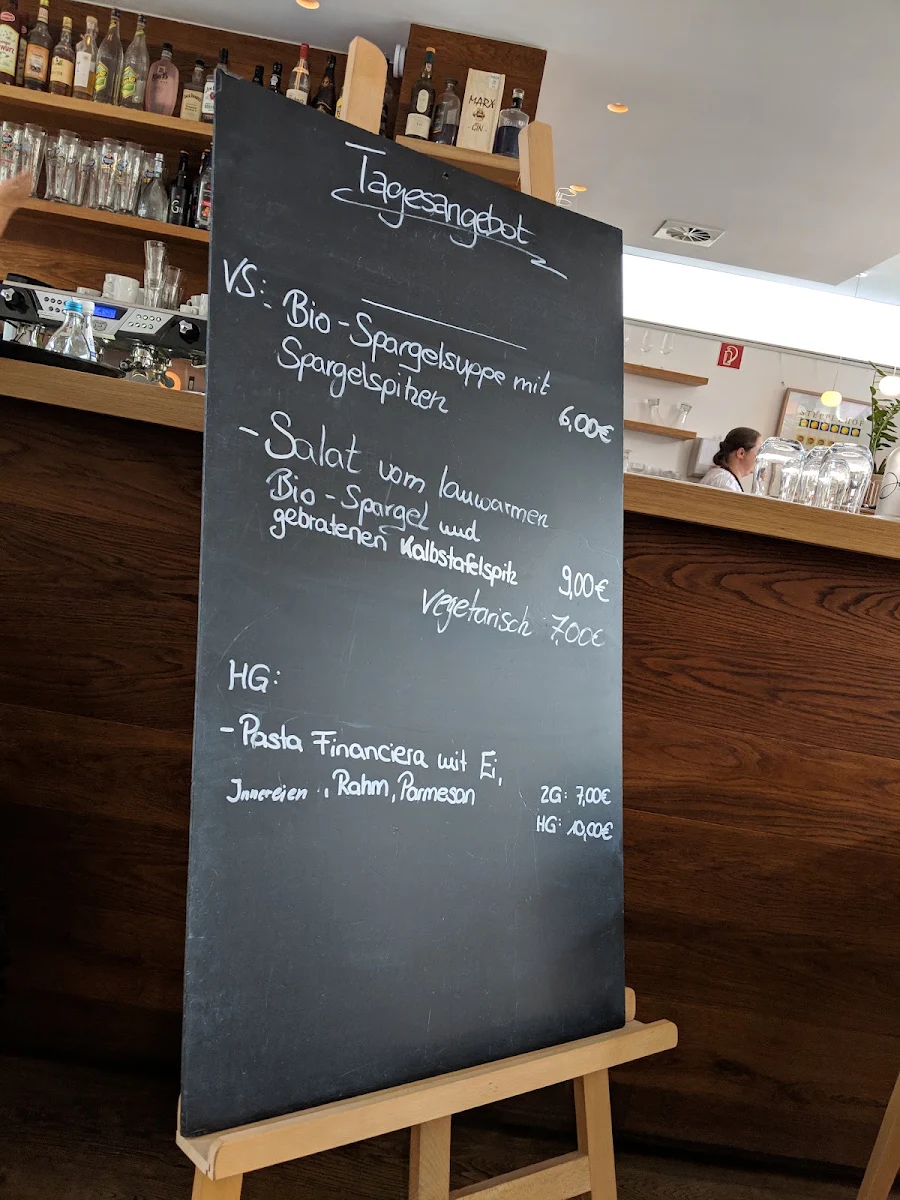 Tagesangebot
VS:
- Bio - Spargelsuppe mit
Spargelspitzen
6,00€
- Salat vom lauwarmen
Bio - Spargel und
gebratenen Kalbstafelspitz
9,00€
vegetarisch 7,00€
HG:
- Pasta Financiera mit Ei,
Innereien , Rahm, Parmesan
2G: 7,00€
HG: 10,00€
MARX
- GIN -